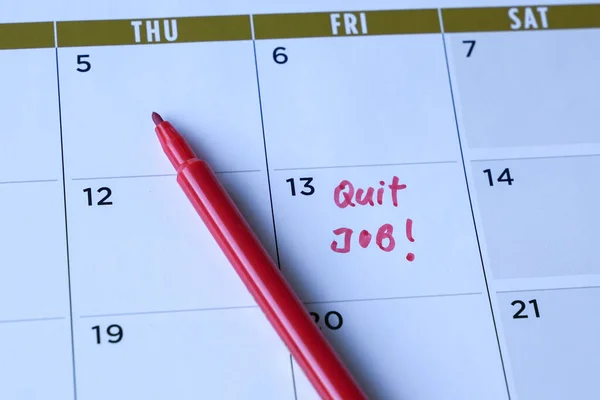 THU FRI SAT
5 6 7
12 13 14
Quit
JOB!
19 20 21